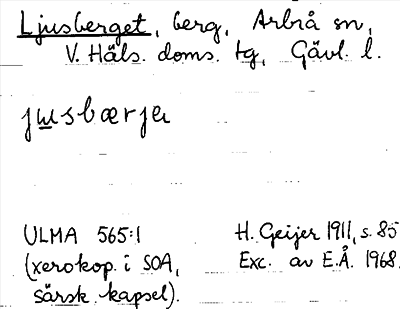 Ljusberget, berg, Arbrå sn,
V. Häls. doms. tg, Gävl. l.
jusbærjeɩ
ULMA 565:1
(xerokop. i SOA,
särsk. kapsel).
H. Geijer 1911, s. 85
Exc. av E.Å. 1968.